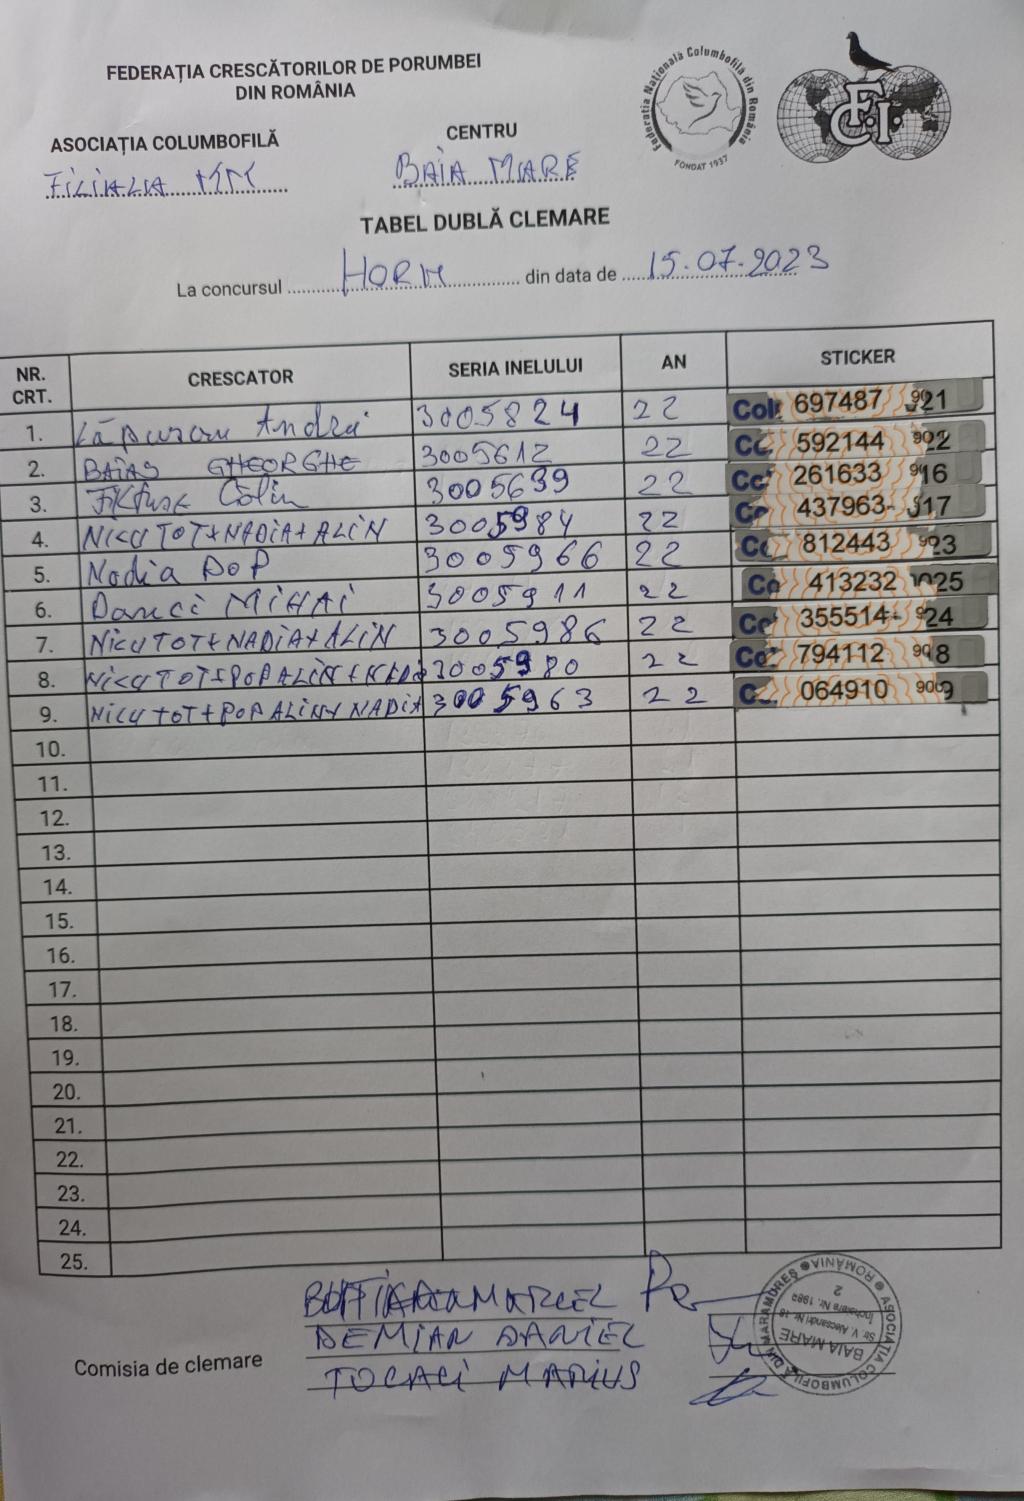 FEDERAȚIA CRESCĂTORILOR DE PORUMBEI
DIN ROMÂNIA
Federația Națională Columbofilă din România
FONDAT 1937
F.C.I.
ASOCIAȚIA COLUMBOFILĂ
CENTRU
FILIALIA MM
BAIA MARE
TABEL DUBLĂ CLEMARE
La concursul HORN din data de 15.07.2023
NR. CRT. CRESCATOR SERIA INELULUI AN STICKER
1. Lăpușan Andrei 3005824 22 697487 921
2. BAIAS GHEORGHE 3005612 22 592144 922
3. Călin 3005639 22 261633 916
4. NICU TOT+NADIA+ALIN 3005984 22 437963- 917
5. Nadia POP 3005966 22 812443 923
6. Danci MIHAI 3005911 22 413232 1025
7. NICU TOT+NADIA+ALIN 3005986 22 355514- 924
8. NICU TOT+POP ALIN+NADIA 3005980 22 794112 908
9. NICU TOT+POP ALIN+NADIA 3005963 22 064910 909
10.
11.
12.
13.
14.
15.
16.
17.
18.
19.
20.
21.
22.
23.
24.
25.
Comisia de clemare
MARCEL
DEMIAN DANIEL
TOCACI MARIUS
ASOCIAȚIA COLUMBOFILĂ DIN MARAMUREȘ ROMANIA
BAIA MARE
Str. V. Alecsandri Nr.
2